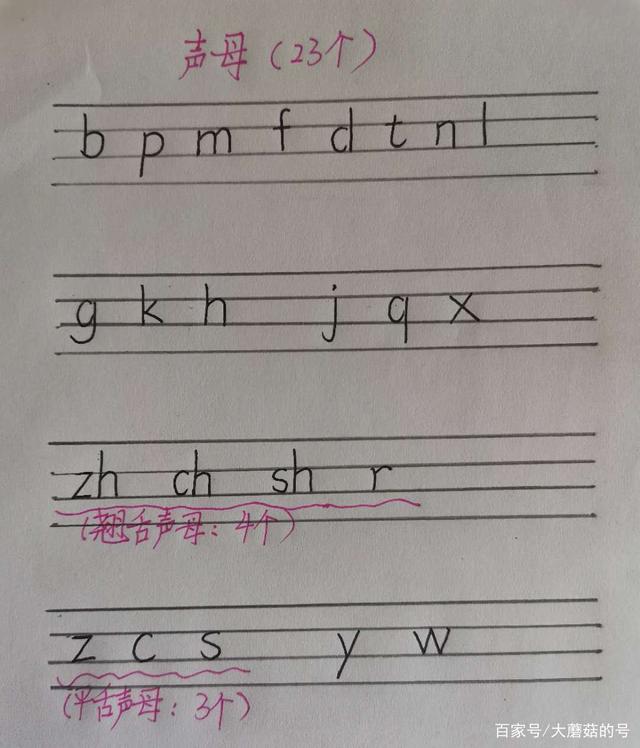 声母（23个）
b p m f d t n l
g k h j q x
zh ch sh r
（翘舌声母：4个）
z c s y w
（平舌声母：3个）
百家号/大蘑菇的号